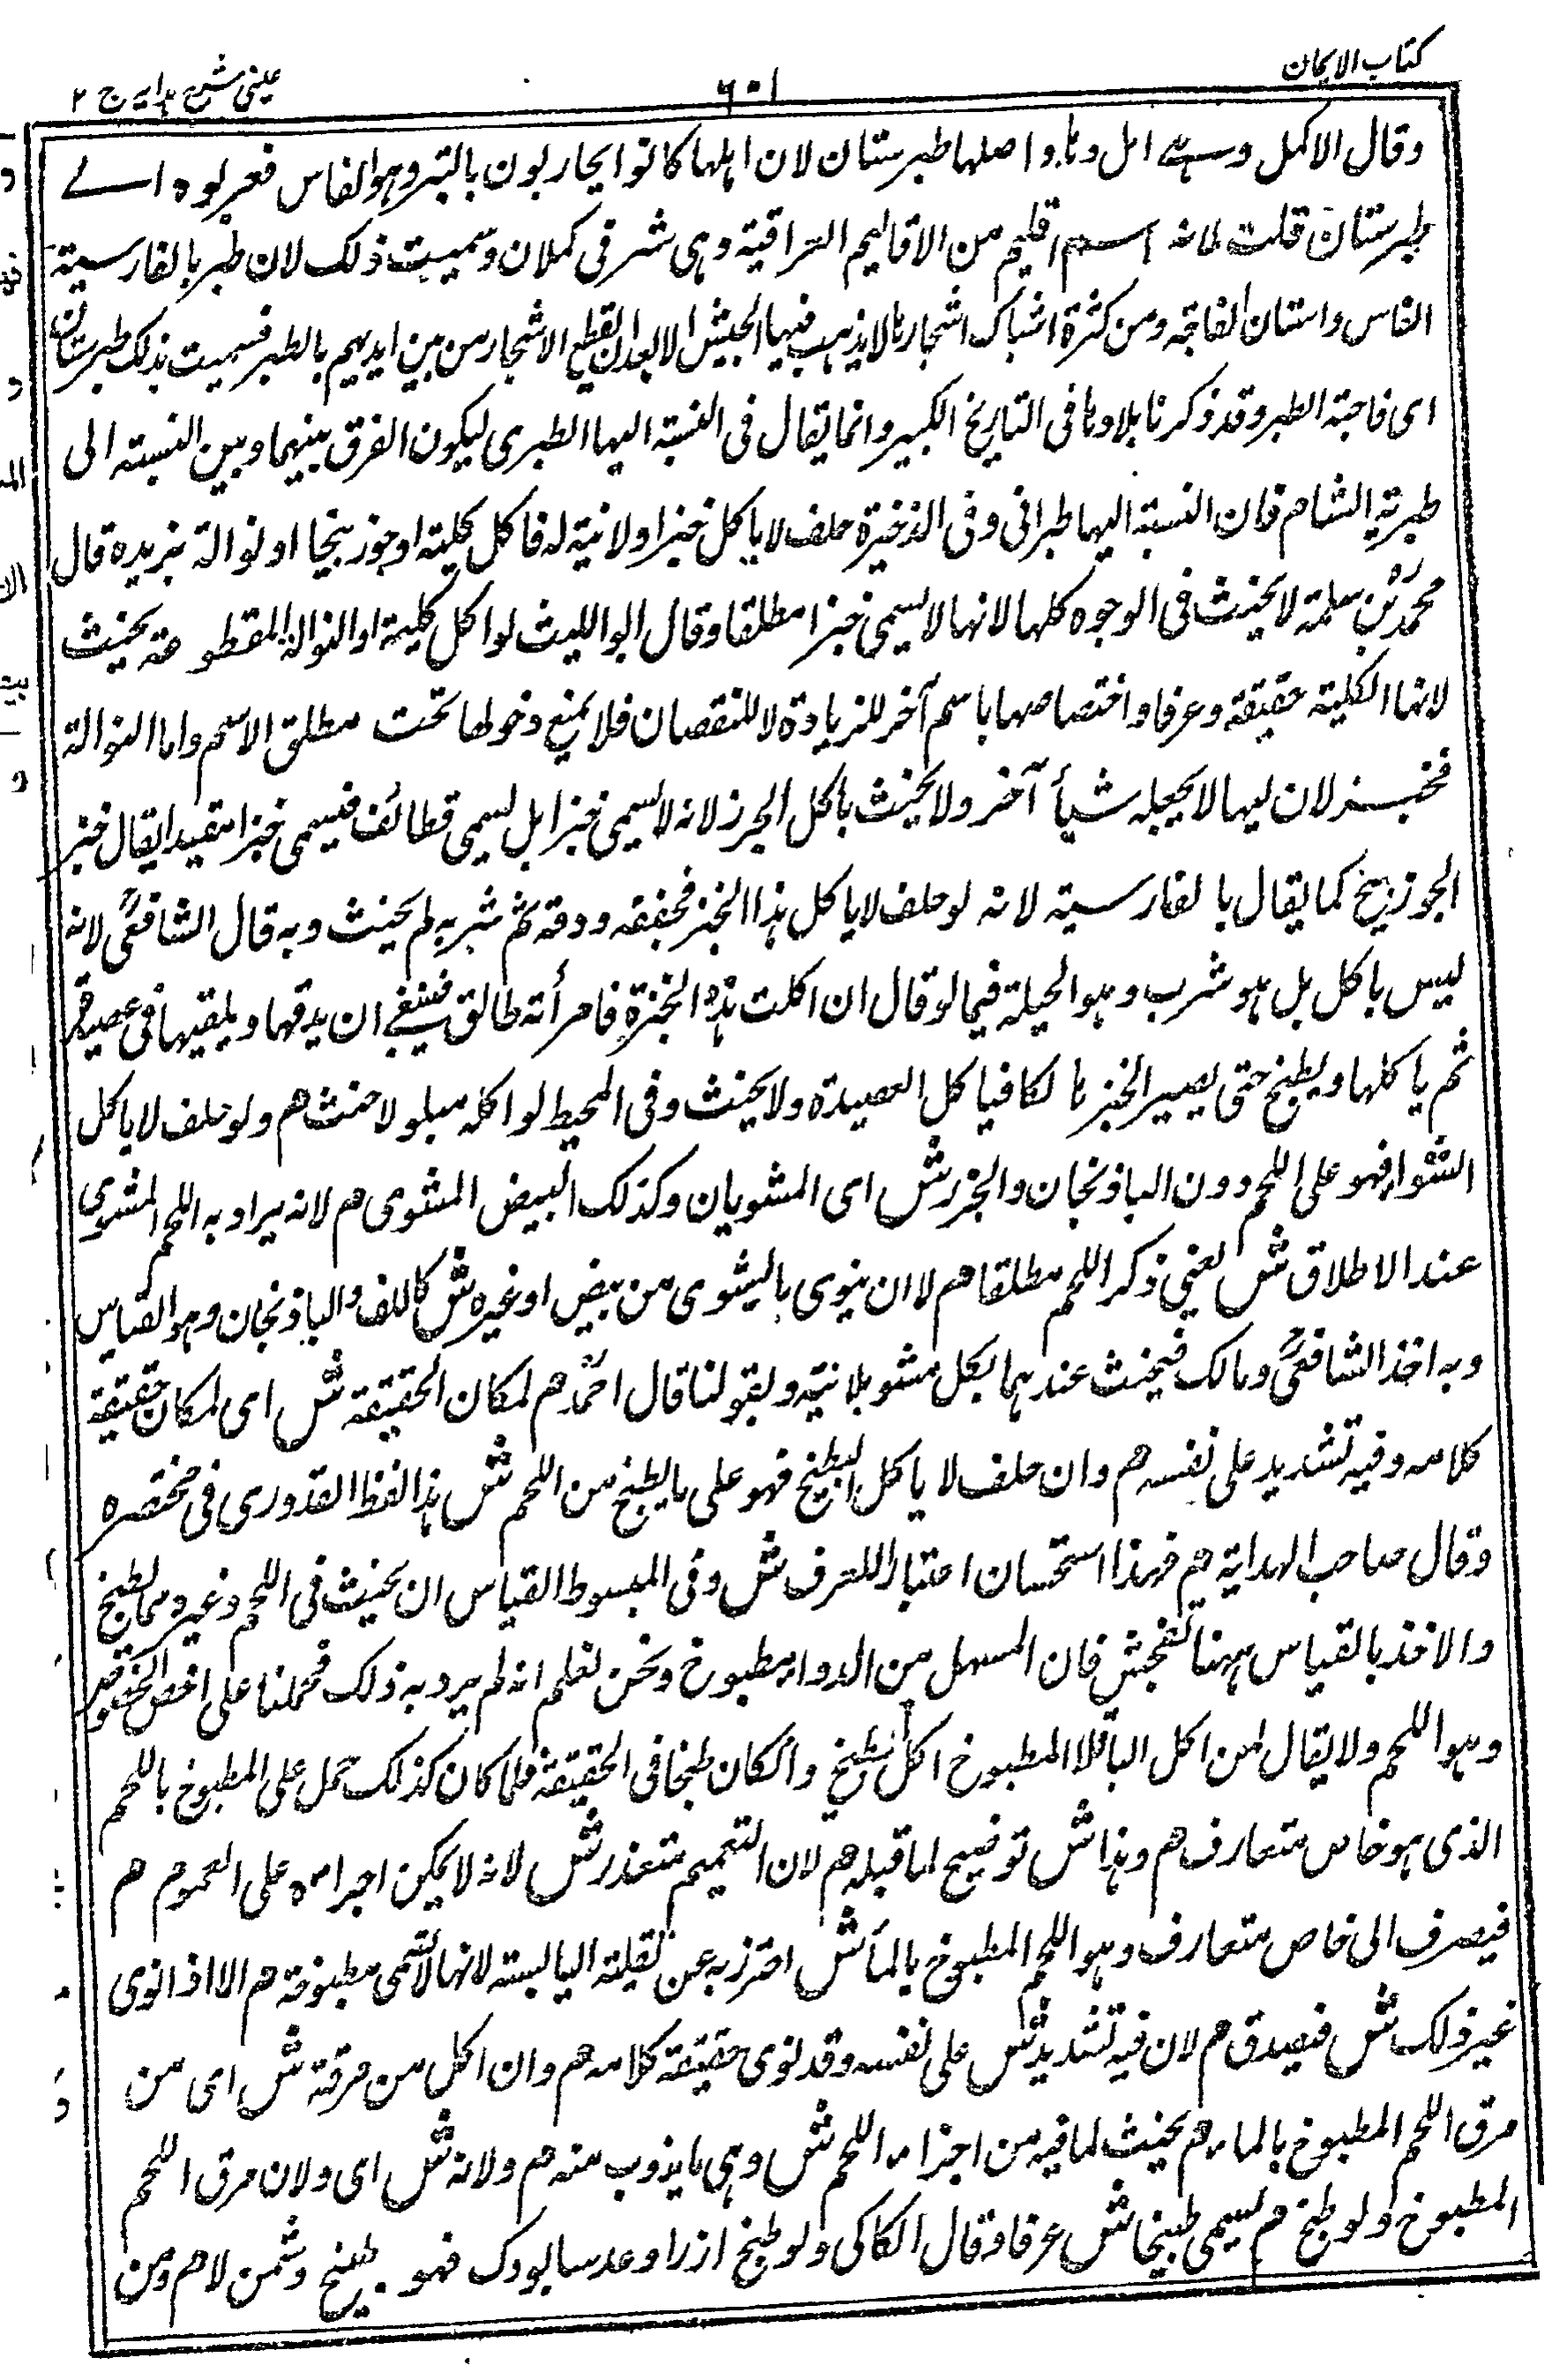 كتاب الايمان
٦٠١
عينى شرح هدايه ج ٢
وقال الاكمل وهي امل وبلاد اصلها طبرستان لان اهلها كانوا يحاربون بالتبر وهو الفاس فعربوه الى
طبرستان قلت لانه اسم اقليم من الاقاليم العراقية وهى شرقى كملان وسميت ذلك لان طبر بالفارسية
الفاس واستان لفاجته ومن كثرة اشباك اشجارها لا يذهب فيها الجيش الا بعد ان يقطع الاشجار من بين ايديهم بالطبر فسميت بذلك طبرستان
اى فاجتة الطبر وقد ذكرنا بلادها فى التاريخ الكبير وانما يقال فى النسبة اليها الطبرى ليكون الفرق بينهما وبين النسبة الى
طبرية الشام فان النسبة اليها طبرانى وفى الذخيرة حلف لا ياكل خبزا ولا نية له فاكل كليته او جوزينجا او نوالة بزيده قال
محمد بن سلمة لا يحنث فى الوجوه كلها لانها لا يسمى خبزا مطلقا وقال ابو الليث لو اكل كليمة او النوالة المقطوعة يحنث
لانها الكليتة حقيقة وعرفا واختصاصها باسم آخر للزيادة لا للنقصان فلا يمنع دخولها تحت مطلق الاسم واما النوالة
فخبز لان ليها لا يجعله شيأ آخر ولا يحنث باكل الجرز لانه لا يسمى خبزا بل يسمى قطائف فيسمى خبزا مقيدا يقال خبز
الجوزينج كما يقال بالفارسية لانه لو حلف لا ياكل هذا الخبز فجففه ودقه ثم شربه لم يحنث وبه قال الشافعى لانه
ليس باكل بل هو شرب وهو الحيلة فيما لو قال ان اكلت هذه الخبزة فامرأته طالق فينبغى ان يدقها ويلقيها فى عصيدة
ثم ياكلها ويطبخ حتى يصير الخبز هالكا فياكل العصيدة ولا يحنث وفى المحيط لو اكله مبلولا حنث هم ولو حلف لا ياكل
الشواء فهو على اللحم دون الباذنجان والجزر ش اى المشويان وكذلك البيض المشوى م لانه يراد به اللحم المشوى
عند الاطلاق ش يعنى ذكر اللحم مطلقا هم الا ان ينوى ما يشوى من بيض او غيره ش كاللف والباذنجان وهو القياس
وبه اخذ الشافعى ومالك فيحنث عندهما بكل مشو بلا نية وبقولنا قال احمد هم لمكان الحقيقة ش اى لمكان حقيقة
كلامه وفيه تشديد على نفسه هم وان حلف لا ياكل الطبيخ فهو على ما يطبخ من اللحم ش هذا لفظ القدورى فى مختصره
وقال صاحب الهداية هم فهذا استحسان اعتبارا للعرف ش وفى المبسوط القياس ان يحنث فى اللحم وغيره مما يطبخ
والاخذ بالقياس ههنا تفحش فان المسهل من الدواء مطبوخ ونحن نعلم انه لم يرد به ذلك فحملنا على اخص الخصوص
وهو اللحم ولا يقال لمن اكل الباقلا المطبوخ اكل طبيخ وان كان طبخا فى الحقيقة فلما كان كذلك حمل على المطبوخ باللحم
الذى هو خاص متعارف هم وهذا ش توضيح لما قبله هم لان التعميم متعذر ش لانه لا يمكن اجراءه على العموم هم
فيصرف الى خاص متعارف وهو اللحم المطبوخ بالماء ش احترز به عن القلية اليابسة لانها لا تسمى مطبوخة هم الا اذا نوى
غير ذلك ش فيصدق هم لان فيه تشديد ش على نفسه وقد نوى حقيقة كلامه هم وان اكل من مرقة ش اى من
مرق اللحم المطبوخ بالماء هم يحنث لما فيه من اجزاء اللحم ش وهى ما يذوب منه هم ولانه ش اى ولان مرق اللحم
المطبوخ ولو طبخ هم يسمى طبيخا ش عرفا وقال الكاكى ولو طبخ ارزا وعدسا بودك فهو طبيخ وسمن لا هم ومن